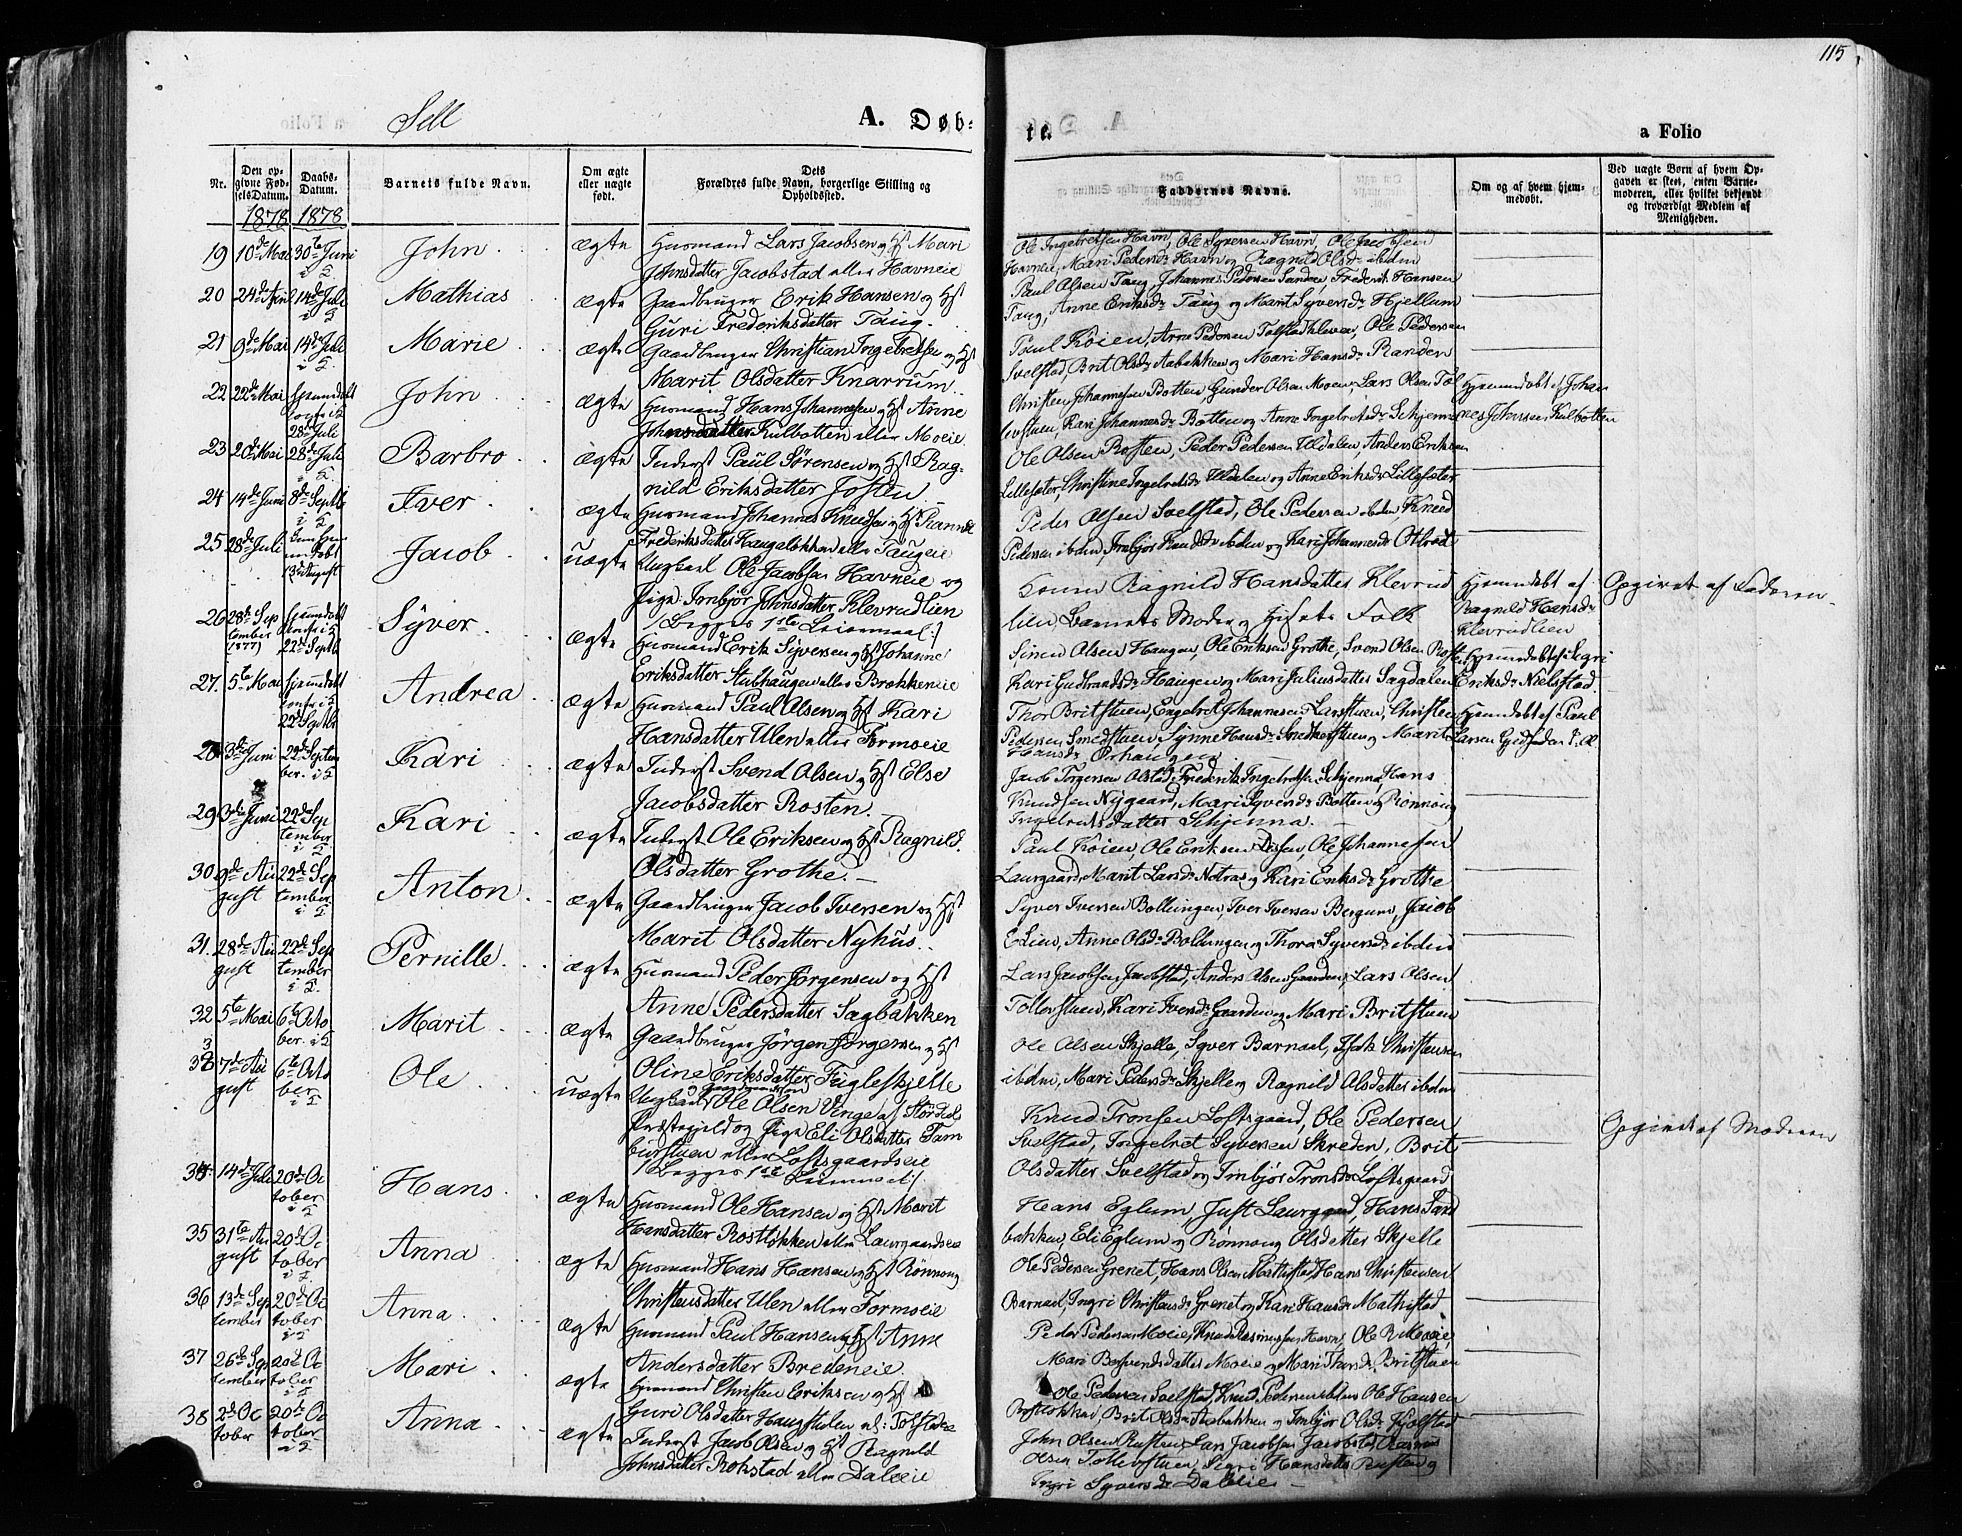 115
Sell
A. Døb=
te.
a Folio
Nr.
Den op-
givne Fød-
selsDatum.
1878
Daabs-
Datum.
1878
Barnets fulde Navn.
Om ægte
eller uægte
født.
Dets
Forældres fulde Navn, borgerlige Stilling og
Opholdssted.
Faddernes Navne.
Om og af hvem hjem-
medøbt.
Ved uægte Børn af hvem Op-
gaven er skeet, enten Barne-
moderen, eller hvilket bekjendt
og troværdigt Medlem af
Menigheden.
19 10de Mai 30te Juni John ægte Husmand Lars Jacobsen og Hst Mari
Johnsdatter Jacobstad eller Havneie
Ole Ingebretsen Havn, Ole Syversen Havn, Ole Jacobsen
Havneie, Mari Pedersdr Havn og Ragnild Olsdr ibden
20 24de April 14de Juli Mathias ægte Gaardbruger Erik Hansen og Hst
Guri Frederiksdatter Taug.
Paul Olsen Taug, Johannes Pedersen Sanden, Frederik Hansen
Taug, Anne Eriksdr Taug og Marit Syversdr Hjellum
21 9de Mai 14de Juli Marie ægte Gaardbruger Christian Ingebretsen og Hst
Marit Olsdatter Knarrum.
Paul Kôien, Arne Pedersen Tolstadkleven, Ole Pedersen
Svelstad, Brit Olsdr Aabakken og Mari Hansdr Randen
22 22de Mai Hjemmedøbt
28de Juli John ægte Husmand Hans Johannesen og Hst Anne
Johnsdatter Kulbotten eller Moeie
Christen Johannesen Botten, Gunder Olsen Moen, Lars Olsen Tol
levstuen, Kari Johannesdr Botten og Anne Ingebretsdr Schjenna
Hjemmedøbt af Johan
nes Johnsen Kulbotten
23 20de Mai 28de Juli Barbro ægte Inderst Paul Sørensen og Hst Rag-
nild Eriksdatter Josten
Ole Olsen Rosten, Peder Pedersen Uldalen, Anders Eriksen
Lillesæter, Christine Ingebretsdr Uldalen og Anne Eriksdr Lillesæter
24 14de Juni 8de Septb Iver ægte Husmand Johannes Knudsen og Hst Rannei
Frederiksdatter Haugaløkken eller Taugeie
Peder Olsen Svelstad, Ole Pedersen ibden, Knud
Pedersen ibden, Imbjør Knudsdr ibden og Kari Johannesdr
25 28de Juli
13de August Jacob uægte Ungkarl Ole Jacobsen Havneie og
Pige Imbjør Johnsdatter Klevrudlien
/: Begges 1ste Leiermaal :/
Konen Ragnild Hansdatter Klevrud
lien, Barnets Moder og Husets Folk
Hjemmedøbt af
Ragnild Hansdr
Klevrudlien
Opgivet af Faderen
26 28de Sep
tember
(1877) Hjemmedøbt
22de Septb Syver ægte Husmand Erik Syversen og Hst Johanne
Eriksdatter Stubhaugen eller Brækkeneie
Simen Olsen Haugen, Ole Eriksen Grothe, Svend Olsen Rosten
Kari Gudbrandsdr Haugen og Mari Juliusdatter Sagdalen
Hjemmedøbt af Sigri
Eriksdr Nielsstad.
27. 5te Mai Hjemmedøbt
22de Septbr Andrea ægte Husmand Paul Olsen og Hst Kari
Hansdatter Ulen eller Formoeie
Thor Britstuen, Engebret Johannesen Larsstuen, Christen
Pedersen Smedstuen, Synne Hansdr Smedstuen og Marit
Hansdr
Hjemmedøbt af Paul
28 3die Juni 22de Septem
ber. Kari ægte Inderst Svend Olsen og Hst Else
Jacobsdatter Rosten.
Jacob Torgersen Olstad, Frederik Ingebretsen Schjenna, Hans
Knudsen Nygaard, Mari Syversdr Botten og Rønnoug
Ingebretsdatter Schjenna.
29 3die Juni 22de Sep
tember Kari ægte Inderst Ole Eriksen og Hst Ragnild
Olsdatter Grothe.
Paul Kôien, Ole Eriksen, Ole Johannesen
Laurgaard, Marit Larsdr og Kari Eriksdr Grothe
30 9de Au
gust 22de Sep
tember Anton ægte Gaardbruger Jacob Iversen og Hst
Marit Olsdatter Nyhus.
Syver Iversen Bollingen, Iver Iversen Bergum, Jacob
Elien, Anne Olsdr Bollingen og Thora Syversdr ibden
31. 28de Au
gust 22de Sep
tember Pernille ægte Husmand Peder Jørgensen og Hst
Anne Pedersdatter Sagbakken
Lars Jacobsen Jacobstad, Anders Olsen Gaarden, Lars Olsen
Tollevstuen, Kari Iversdr Gaarden og Mari Britstuen
32 5te Mai 6te Octo
ber. Marit ægte Gaardbruger Jørgen Jørgensen og Hst
Oline Eriksdatter Fugleskjelle
Ole Olsen Skjelle, Syver Barnael, Isak Christensen
ibden, Mari Pedersdr Skjelle og Ragnild Olsdatter ibden
33 7de Au
gust 6te Octo
ber Ole uægte Ungkarl Ole Olsen Vinge af Stördals
Præstegjeld og Pige Eli Olsdatter Tam
burstuen eller Loftsgaardseie
/: Begges 1ste Leiermaal :/
Knud Tronsen Loftsgaard, Ole Pedersen
Svelstad, Ingebret Syversen Skreden, Brit
Olsdatter Svelstad og Imbjør Tronsdr Loftsgaard
Opgivet af Moderen
34 14de Juli 20de Oc
tober Hans ægte Husmand Ole Hansen og Hst Marit
Hansdatter Rostløkken eller Laurgaardseie
Hans Eglum, Just Laurgaard, Hans Sand
bakken, Eli Eglum og Rønnoug Olsdatter Skjelle
35 31te Au
gust 20de Oc
tober Anna ægte Husmand Hans Hansen og Hst Rønnoug
Christensdatter Ulen eller Formoeie
Ole Pedersen Grenet, Hans Olsen Mathistad, Hans Christensen
Barnael, Ingri Christensdr Grenet og Kari Hansdr Mathistad
36 13de Sep
tember 20de Oc
tober Anna ægte Husmand Paul Hansen og Hst Anne
Andersdatter Bredeneie
Peder Pedersen Moeie, Knud Rasmussen Havn, Ole Moeie
Mari datter Moeie og Mari Thorsdr Britstuen
37 26de Sep
tember 20de Oc
tober Mari ægte Husmand Christen Eriksen og Hst
Guri Olsdatter Haugstulen el: Tolstadeie
Ole Pedersen Svelstad, Knud Pedersen ibden, Ole Hansen
Rostløkken, Brit Olsdr Aabakken og Imbjør Olsdr
38 2de Oc
tober 20de Oc
tober Anna ægte Inderst Jacob Olsen og Hst Ragnild
Johnsdatter Rokstad eller Daleeie
John Olsen Rusten, Lars Jacobsen Jacobstad, Rasmus
Olsen Tollevstuen, Sigri Hansdatter Rusten og
Ingri Syversdr Daleeie